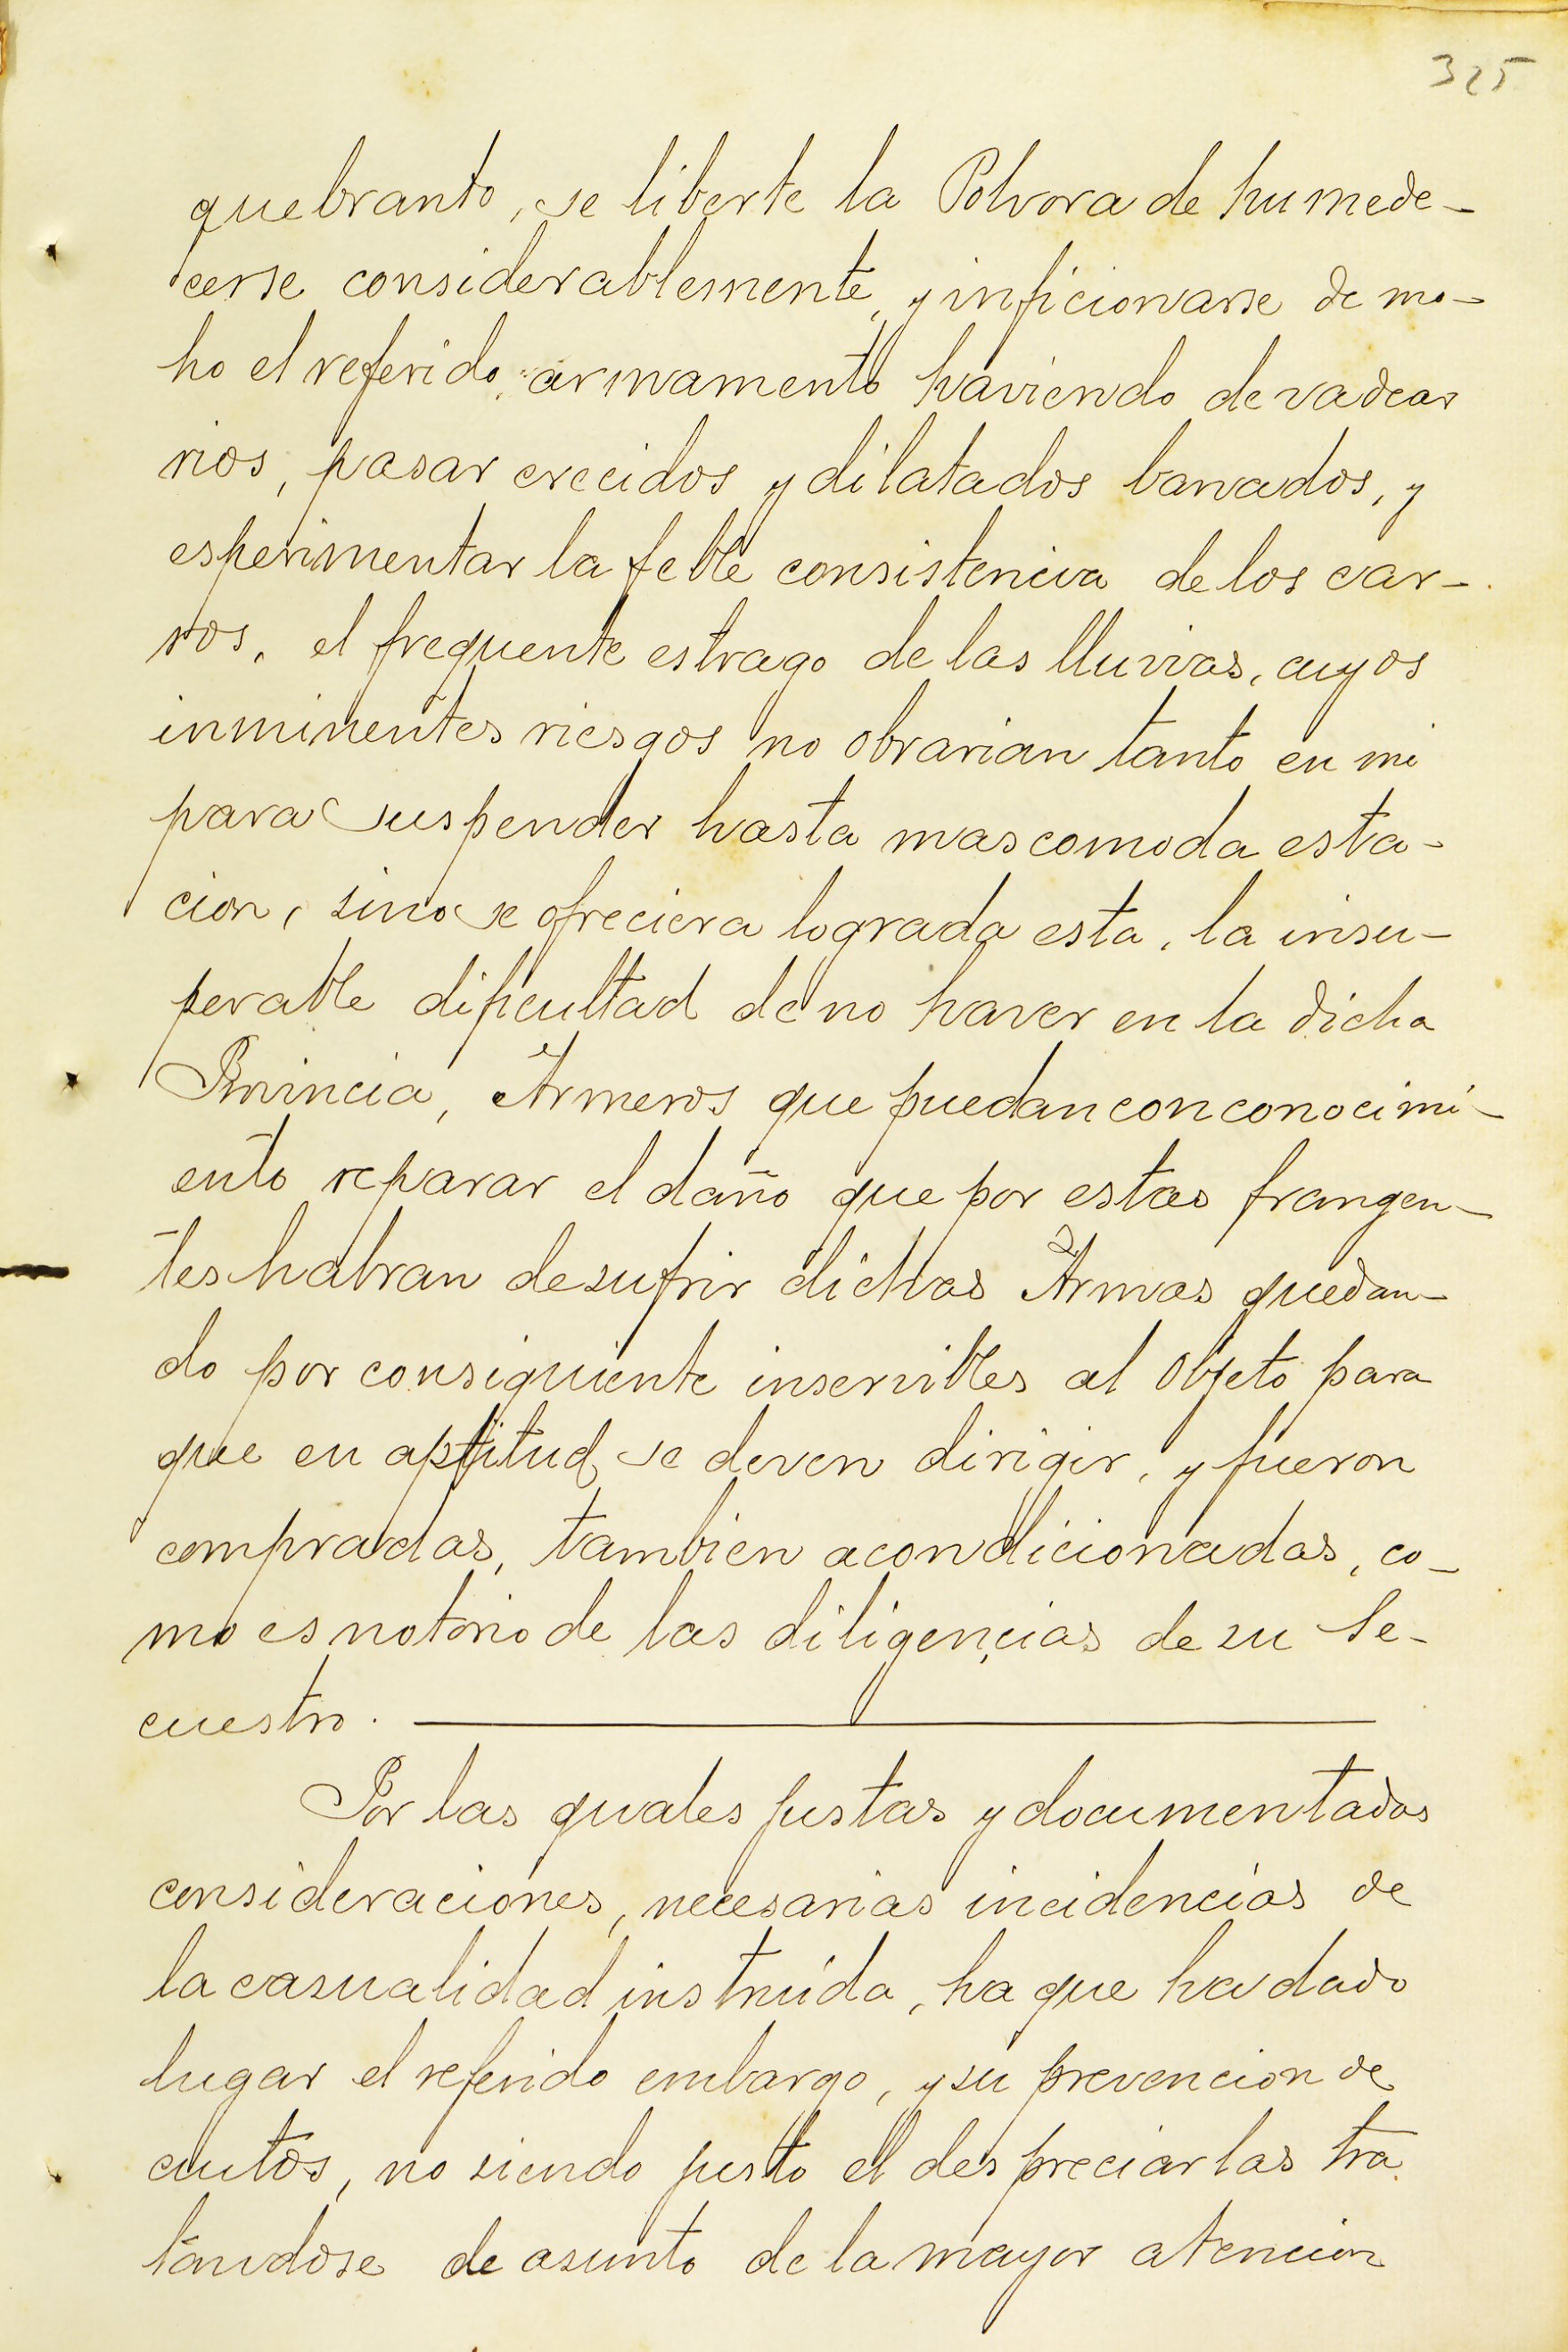 325
quebranto, se liberte la Polvora de humede-
cerse considerablemente, y inficionarse de mo-
ho el referido, armamento haviendo de vadear
rios, pasar crecidos y dilatados banados, y
esperimentar la feble consistencia de los car-
ros, el frequente estrago de las lluvias, cuyos
inminentes riesgos no obrarian tanto en mi
para suspender hasta mas comoda esta-
cion, sino se ofreciera lograda esta, la insu-
perable dificultad de no haver en la dicha
Provincia, Armeros que puedan con conocimi-
ento reparar el daño que por estas frangen-
tes habran de sufrir dichas Armas quedan-
do por consiguiente inservibles al objeto para
que en aptitud se deven dirigir, y fueron
compradas, tambien acondicionadas, co-
mo es notorio de las diligencias de su Se-
cuestro.
Por las quales justas y documentadas
consideraciones, necesarias incidencias de
la casualidad instruida, ha que ha dado
lugar el referido embargo, y su prevencion de
autos, no siendo justo el despreciarlas tra
tandose de asunto de la mayor atencion